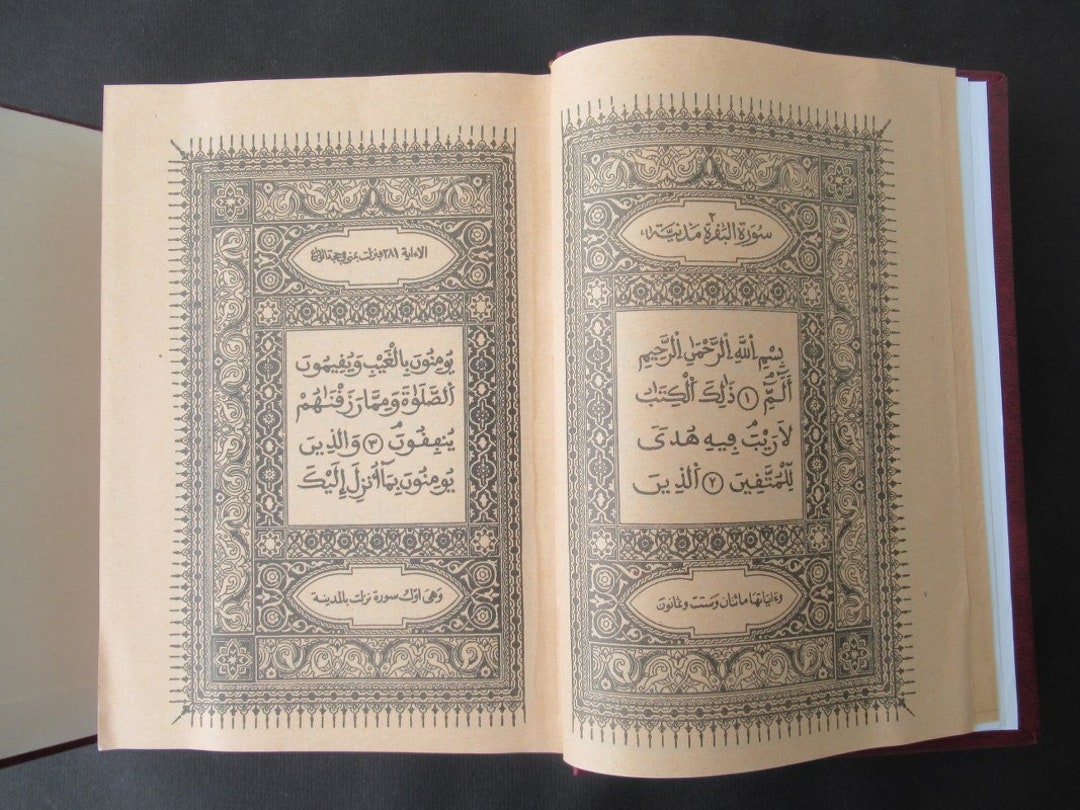 سُورَة البَقَرة مَدَنيَّة ٢
بِسْمِ اِللَّهِ اِلرَّحْمَٰنِ اِلرَّحِيمِ
أَلَٓمِّٓۖ ١ ذَٰلِكَ اَلْكِتَٰبُ
لَا رَيْبَۖ فِيهِ هُدىً
لِّلْمُتَّقِينَ ٢ اَلذِينَ
وءاياتها مائتان وست وثمانون
الا ءاية ٢٨١ فنزلت بمنى في حجة الوداع
يُومِنُونَ بِالْغَيْبِ وَيُقِيمُونَ
اَلصَّلَوٰةَ وَمِمَّا رَزَقْنَٰهُمْ
يُنفِقُونَۖ ٣ وَالذِينَ
يُومِنُونَ بِمَآ أُنزِلَ إِلَيْكَ
وَهيَ أول سورة نزلت بالمدينة